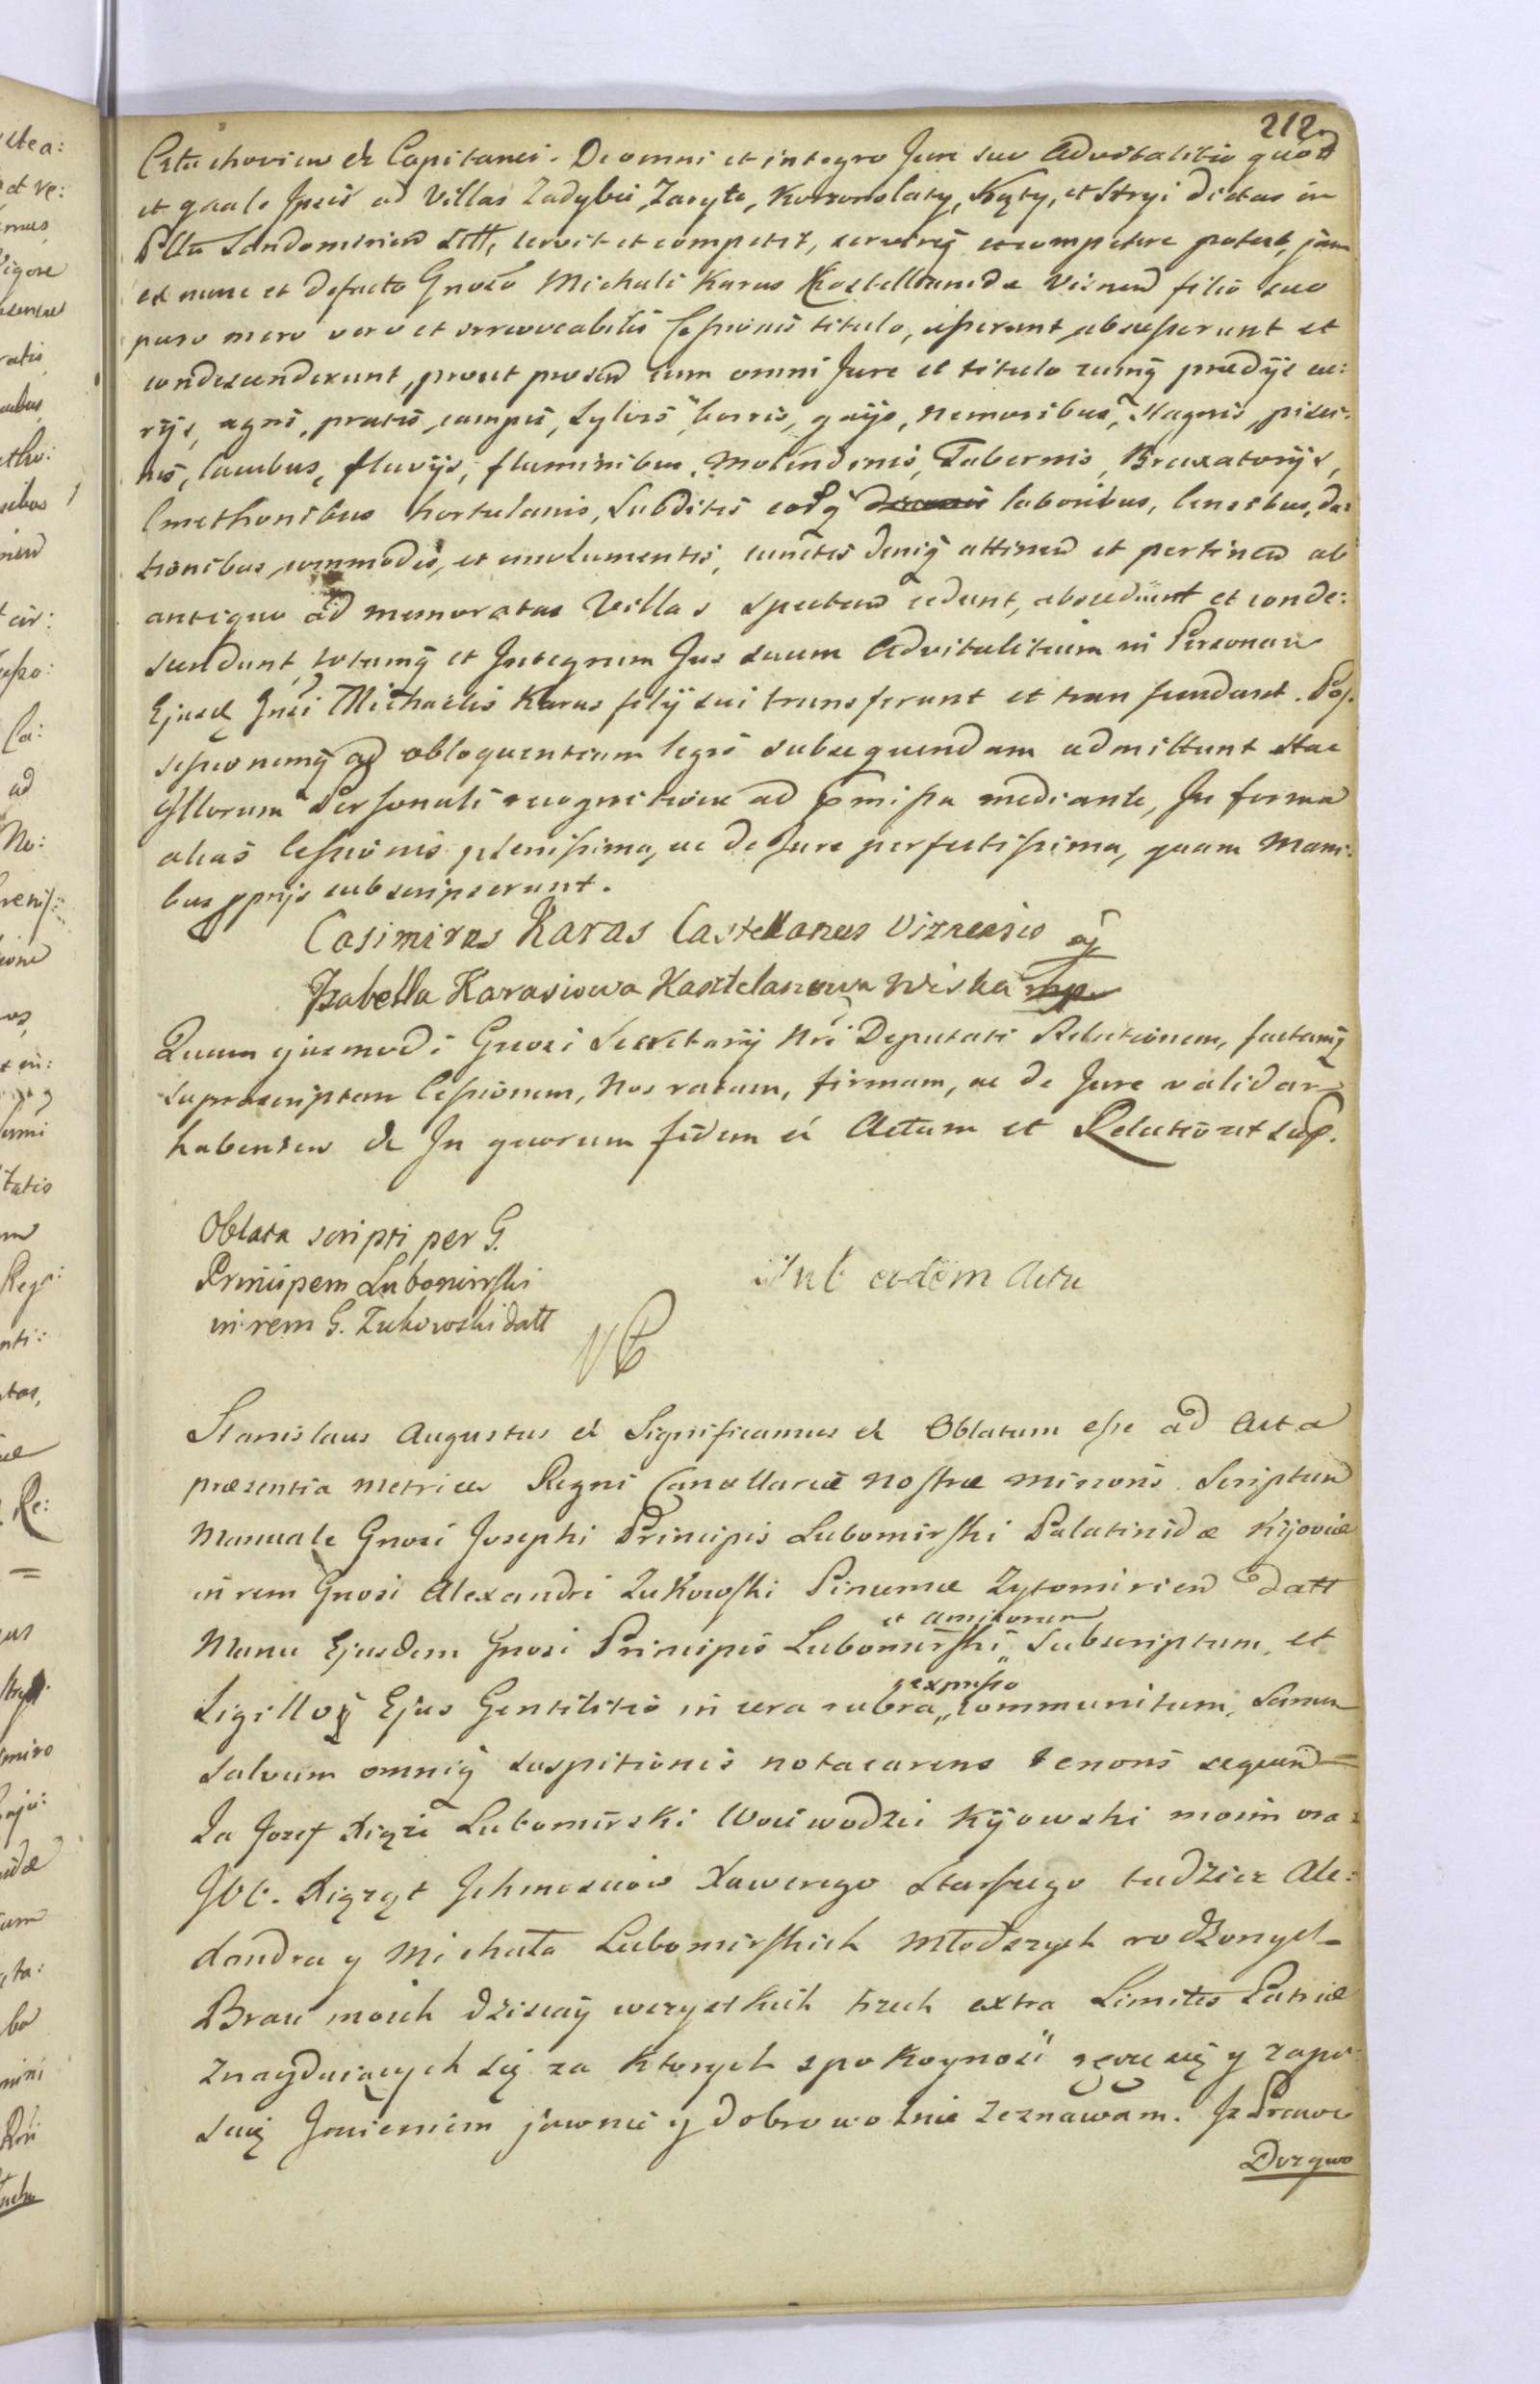 212
Czluchovien &c Capitanei. De omni et integro Jure suo Advitalitio quod
et quale Ipsis ad Villas Zadybie, Zaryte, Korzonslaty, Kąty, et Stryi dictas in
Plltu Sandomirien sitt, servit et competit, servireq et competere poterit, jam
ex nunc et defacto Gnoso Michaeli Karas Kastellanidæ Visnen filio suo
puro mero vero et irrevocabilis Cessionis titulo, cesserunt, abscesserunt et
condescenderunt, prout præsen cum omni Jure et titulo cumq prædijs cu:
rijs, agris, pratis, campis, Sylvis, borris, gaijs, Nemoribus, Stagnis, pisci:
nis, lacubus, fluvijs, fluminibus, Molendinis, Tabernis, Braxatorijs,
Cmethonibus hortulanis, Subditis eorq laboribus, Censibus, da:
tionibus, commodis, et emolumentis, cunctis deniq attinen et pertinen ab
antiquo ad memoratas Villas spectan cedunt, abscedunt et conde:
scendunt, totumq et Integrum Jus suum Advitalitium in Personam
Ejusd Gnsi Michaelis Karas filij sui transferunt et transfundunt. Pos:
sessionemq ad obloquentiam legis subsequendam admittunt Hac
Illorum Personali recognitione ad præmissa mediante, In forma
alias Cessionis plenissima, ac de Jure perfectissima, quam Mani:
bus pprijs subscripserunt.
Casimirus Karas Castellanus Viznensis mp
Izabella Karasiowa Kasztelanowa Wiska mp.
Quam ejusmodi Gnosi Secretarij Nri Deputati Relationem, factamq
supra scriptam Cessionem, Nos ratam, firmam, ac de Jure validam
habentes &c In quorum fidem &c Actum et Relatio ut sup.
Oblata scripti per G.
Principem Lubomirski
in rem G. Zukowski datt
Sub eadem Actu
Stanislaus Augustus &c Significamus &c Oblatum esse ad Acta
præsentia metrices Regni Cancellariæ nostræ minoris Scriptum
Manuale Gnosi Josephi Principis Lubomirski Palatinidæ Kijoviæ
in rem Gnosi Alexandri Zukowski Pincernæ Zytomirien datt
et amicorum
Manu Ejusdem Gnosi Principis Lubomirski Subscriptum, et
expresso
Sigilloq Ejus Gentilitio in cera rubra communitum, Sanum
salvum omniq suspitionis nota carens tenoris sequen =
Ja Jozef Xiąże Lubomirski Woiewodzic Kijowski moim oraz
JOO. Xiążąt Ichmosciow Xawerego Starszego tudziez Ale:
xandra y Michała Lubomirskich Młodszych rodzonych
Braci moich dzisiay wszystkich trzech extra Limites Patriæ
Znayduiących się za ktorych spokoynosc ręczę się y zapi
suię Imieniem jawnie y dobrowolnie zeznawam. Iz Prawo
Dozywo